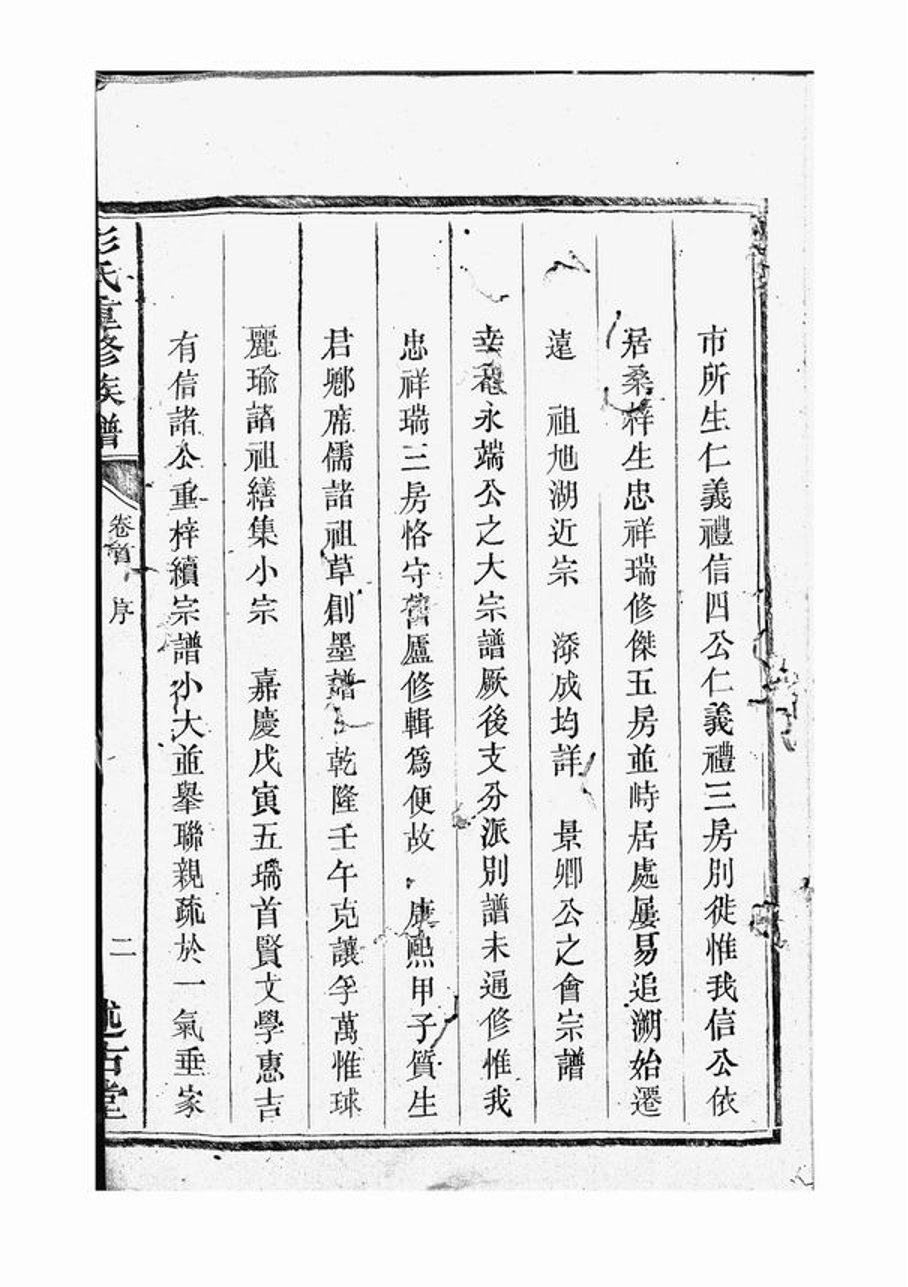 市所生仁義禮信四公仁義禮三房別徙惟我信公依
居桑梓生忠祥瑞修傑五房並峙居處屢易追溯始遷
遠 祖旭湖近宗 添成均詳 景卿公之會宗譜
幸 永端公之大宗譜厥後支分派別譜未通修惟我
忠祥瑞三房恪守舊廬修輯為便故 康熙甲子質生
君鄉席儒諸祖草創墨譜 乾隆壬午克讓孚萬惟球
麗瑜諸祖繕集小宗 嘉慶戊寅五瑞首賢文學惠吉
有信諸公重梓續宗譜小大並舉聯親疏於一氣垂家
彭氏重修族譜 卷首 序 二 述古堂